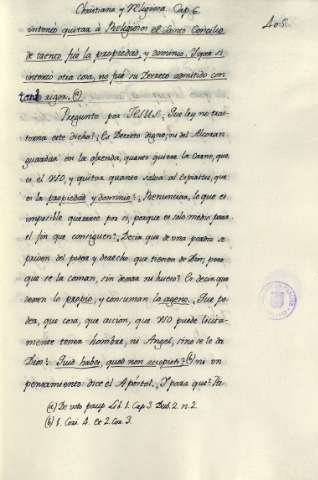 Christiana y Religiosa. Cap. 6.
405
intentó quitar à Religiosos el Santo Concilio
de trento fue la propiedad, y dominio. Y que si
intentó otra cosa, no fue su Decreto admitido con
tal rigor. (a)
Pregunto por JESUS: Que ley no tras
torna este dicho? Es Decreto digno, de Alcoran
guardar en la ofrenda, quanto quiere la Carne, que
es el USO, y quitar quanto salva al Espiritu, que
es la propiedad y dominio? Renunciar lo que es
impossible quererlo por si, porque es solo medio para
el fin que consiguen? Decir que de una perdiz se
priven del poder y derecho que tienen de Dios, para
que se la coman, sin dexar ni hueso? Es decir que
dexen lo proprio, y consuman lo ageno. Que po-
der, que cosa, que acción, que USO puede licita-
mente tener hombre, ni Angel, sino se le da
Dios? Quid habes, quod non accepisti? (b) ni un
pensamiento dice el Apóstol. Y para que? Pa-
(a) De voto paup. Lib. 1. Cap. 3. Dub. 2. n. 2.
(b) 1. Cori. 4. et 2. Cor. 3.